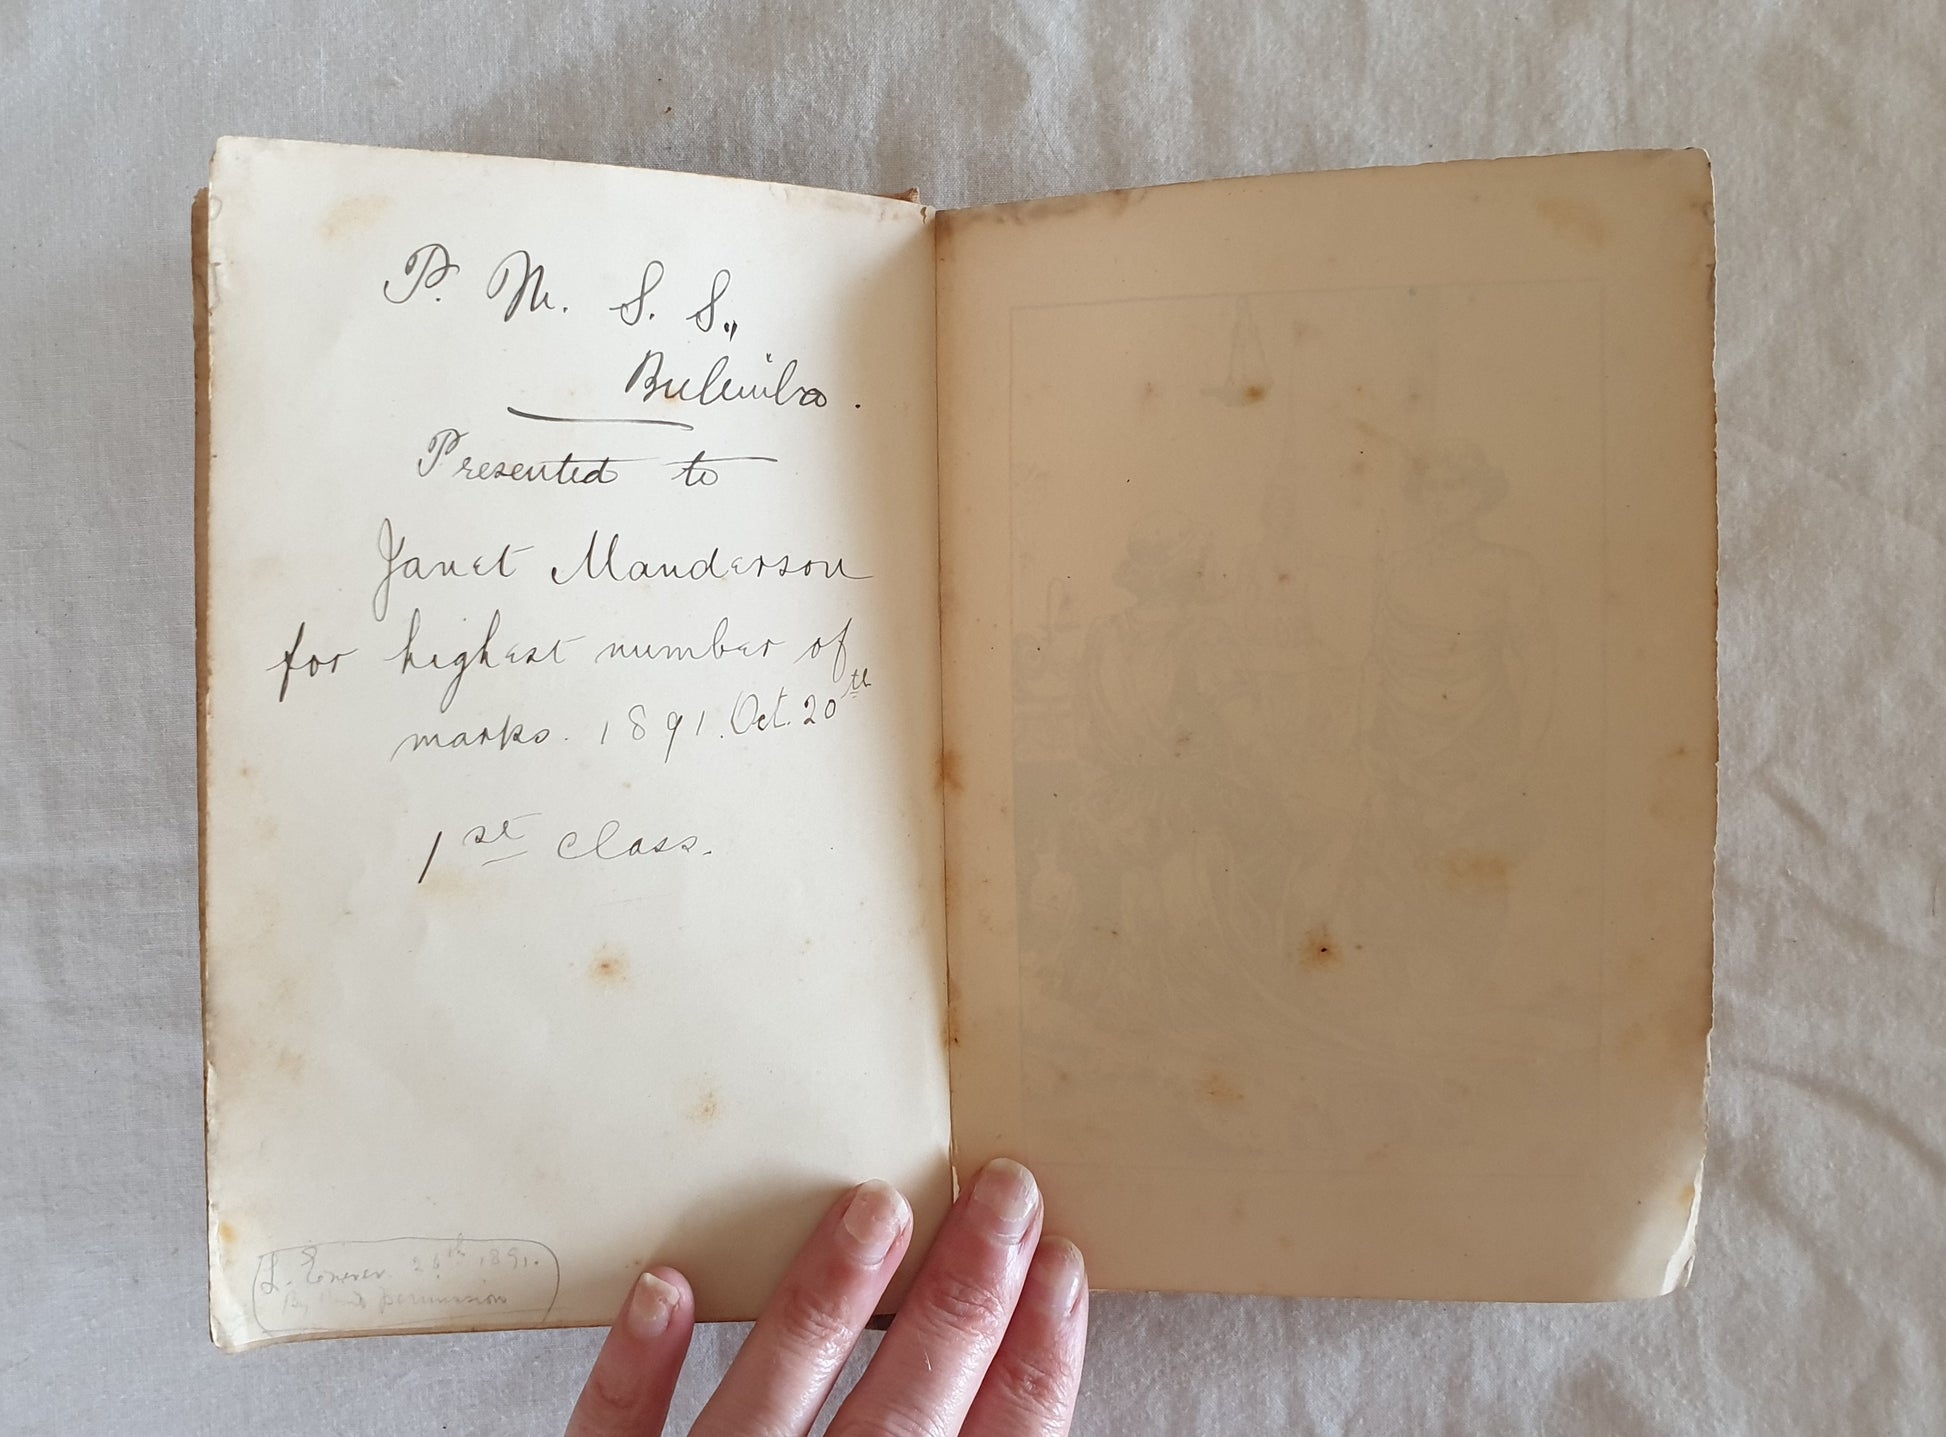 P. M. S. S.,
Bulimba.
Presented to
Janet Manderson
for highest number of
marks. 1891. Oct. 20th
1st class.
L. 26th 1891.
By permission